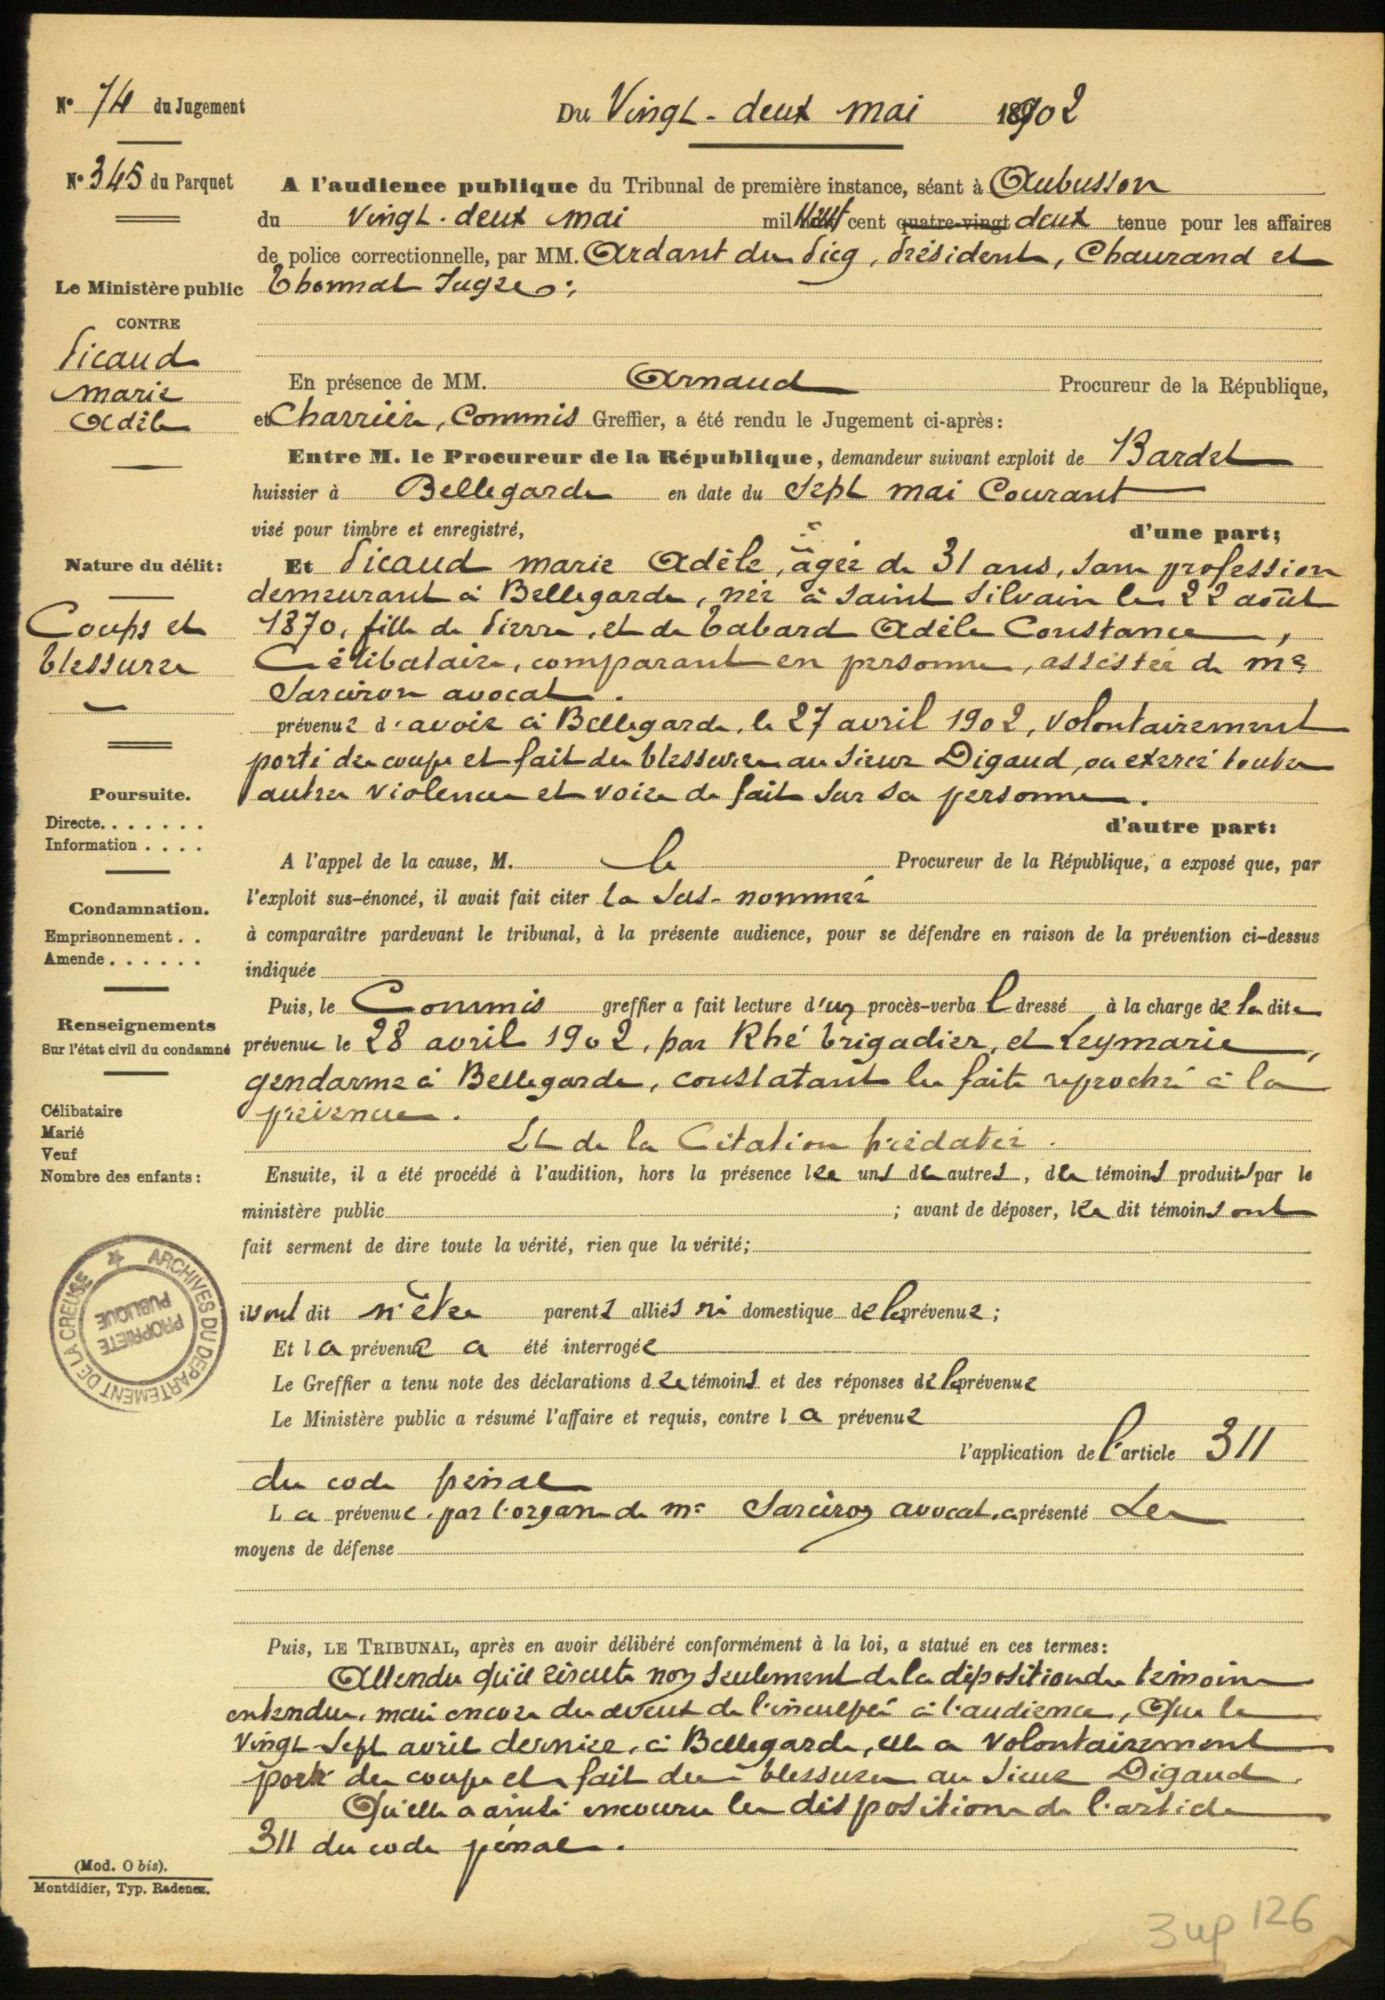 N° 74 du Jugement
Du Vingt-deux mai 1902
N° 345 du Parquet
A l'audience publique du Tribunal de première instance, séant à Aubusson
du Vingt-deux mai mil neuf cent quatre-vingt deux tenue pour les affaires
de police correctionnelle, par MM. Ardant du Picq, Président, Chaurand et
Thonnat Juges;
Le Ministère public
CONTRE
Picaud
marie
Adèle
En présence de MM. Arnaud Procureur de la République,
et Charrière, Commis Greffier, a été rendu le Jugement ci-après:
Entre M. le Procureur de la République, demandeur suivant exploit de Bardet
huissier à Bellegarde en date du Sept mai Courant
visé pour timbre et enregistré, d'une part;
Nature du délit:
Coups et
blessures
Et Picaud marie Adèle, âgée de 31 ans, sans profession
demeurant à Bellegarde, née à Saint Silvain le 22 août
1870, fille de Pierre, et de Tabard Adèle Constance,
Célibataire, comparant en personne, assistée de me
Sarciron avocat.
prévenue d'avoir à Bellegarde, le 27 avril 1902, volontairement
porté des coups et fait des blessures au sieur Digaud, ou exercé toutes
autres violences et voies de fait sur sa personne.
d'autre part:
Poursuite.
Directe.......
Information....
A l'appel de la cause, M. le Procureur de la République, a exposé que, par
l'exploit sus-énoncé, il avait fait citer la sus-nommée
à comparaître pardevant le tribunal, à la présente audience, pour se défendre en raison de la prévention ci-dessus
indiquée
Condamnation.
Emprisonnement..
Amende......
Puis, le Commis greffier a fait lecture d'un procès-verbal dressé à la charge de la dite
prévenue le 28 avril 1902, par Rhé brigadier, et Leymarie,
gendarme à Bellegarde, constatant les faits reprochés à la
prévenue.
Et de la Citation prédatée.
Renseignements
Sur l'état civil du condamné
Célibataire
Marié
Veuf
Nombre des enfants:
Ensuite, il a été procédé à l'audition, hors la présence les uns des autres, des témoins produits par le
ministère public ; avant de déposer, les dit témoins ont
fait serment de dire toute la vérité, rien que la vérité;
ils ont dit n'être parents alliés ni domestique de la prévenue;
Et la prévenue a été interrogée
Le Greffier a tenu note des déclarations des témoins et des réponses de la prévenue
Le Ministère public a résumé l'affaire et requis, contre la prévenue
l'application de l'article 311
du code pénal
La prévenue, par l'organe de me Sarciron avocat, a présenté ses
moyens de défense
ARCHIVES DU DEPARTEMENT DE LA CREUSE
PROPRIETE
PUBLIQUE
Puis, LE TRIBUNAL, après en avoir délibéré conformément à la loi, a statué en ces termes:
Attendu qu'il résulte non seulement de la déposition des témoins
entendus, mais encore des aveux de l'inculpée à l'audience, Que le
Vingt-Sept avril dernier, à Bellegarde, elle a volontairement
porté des coups et fait des blessures au sieur Digaud.
Qu'elle a ainsi encouru les dispositions de l'article
311 du code pénal.
(Mod. O bis).
Montdidier, Typ. Radenez.
3 up 126